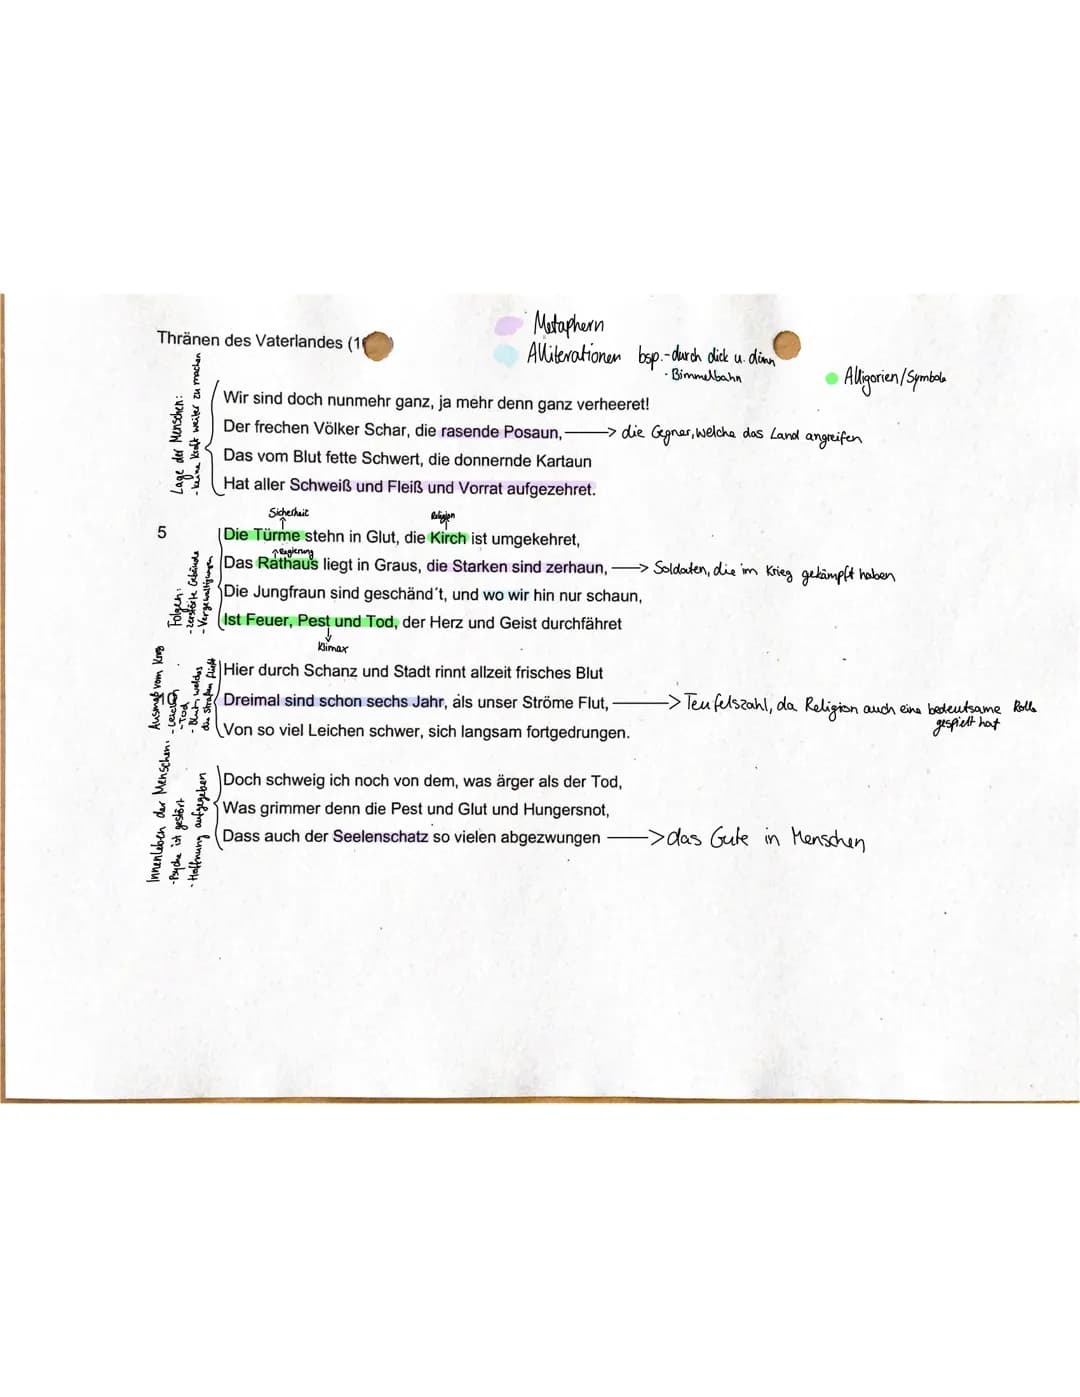 Thränen des Vaterlandes (1
Metaphern
Alliterationen bsp.-durch dick u. dünn
- Bimmelbahn
Alligorien/Symbole
Lage der Menschen:
- keine Kraft weiter zu machen
Wir sind doch nunmehr ganz, ja mehr denn ganz verheeret!
Der frechen Völker Schar, die rasende Posaun, -> die Gegner, welche das Land angreifen
Das vom Blut fette Schwert, die donnernde Kartaun
Hat aller Schweiß und Fleiß und Vorrat aufgezehret.
Sicherheit
Religion
5
Die Türme stehn in Glut, die Kirch ist umgekehret,
Regierung
Das Rathaus liegt in Graus, die Starken sind zerhaun, -> Soldaten, die im Krieg gekämpft haben
Die Jungfraun sind geschänd't, und wo wir hin nur schaun,
Ist Feuer, Pest und Tod, der Herz und Geist durchfähret
Klimax
Folgen:
- zerstörte Gebäude
- Vergewaltigungen
Hier durch Schanz und Stadt rinnt allzeit frisches Blut
10
Dreimal sind schon sechs Jahr, als unser Ströme Flut, -> Teufelszahl, da Religion auch eine bedeutsame Rolle
gespielt hat
Von so viel Leichen schwer, sich langsam fortgedrungen.
Ausmaß vom Krieg
- Leichen
- Tod
- Blut, welches
die Straßen fließt
Doch schweig ich noch von dem, was ärger als der Tod,
Was grimmer denn die Pest und Glut und Hungersnot,
Dass auch der Seelenschatz so vielen abgezwungen -> das Gute in Menschen
Innenleben der Menschen:
- Psyche ist gestört
- Hoffnung aufgegeben